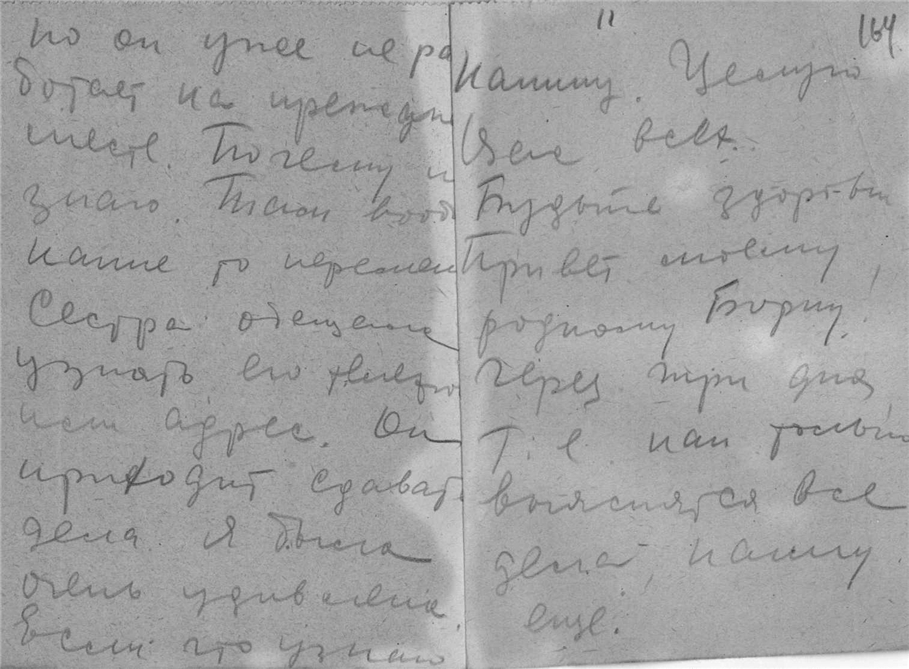 но он уже не ра
ботает на прежнем
месте. Почему н
знаю. Там вооб
какие то перемен
Сестра обещала
узнать его
адрес. Он
приходит сдават
дела Я была
очень удивлена
Если что узнаю
" 164
напишу. Целую
Вас всех.
Будьте здоровы
Привет моему
родному Борику.
Через три дня
т. е. как только
выяснятся все
дела, напишу
еще.